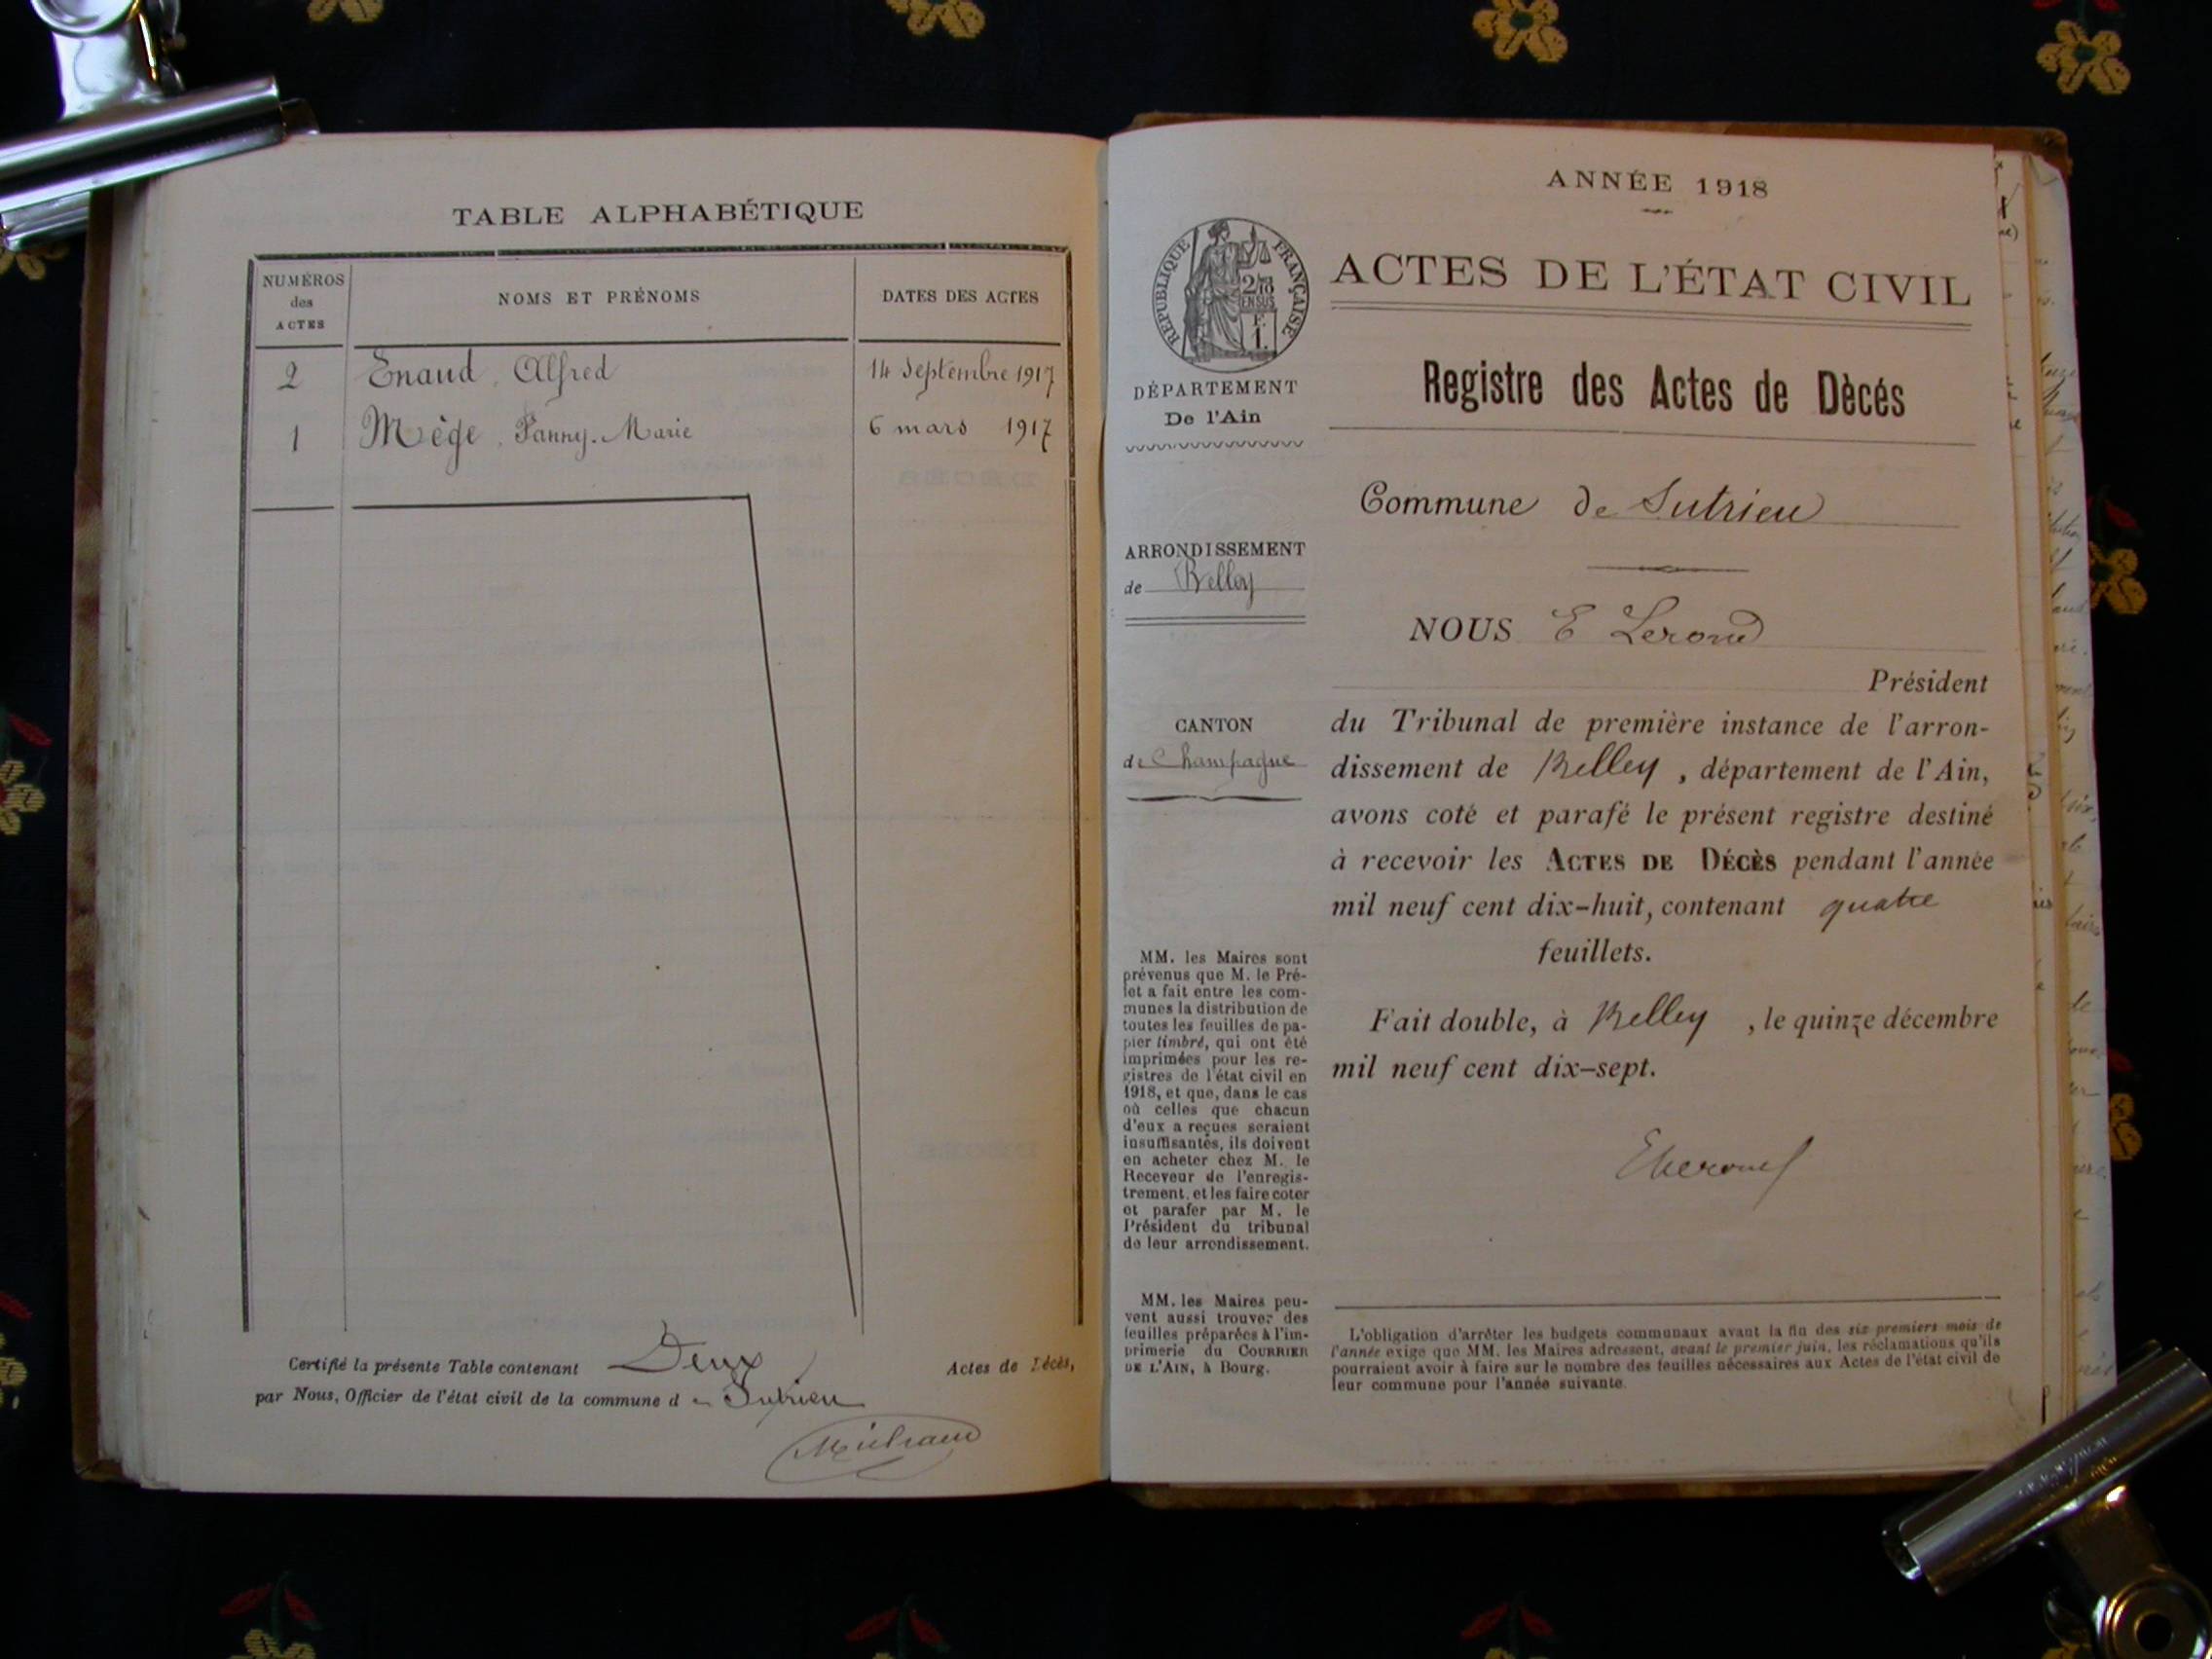 TABLE ALPHABÉTIQUE
NUMÉROS
des
ACTES
NOMS ET PRÉNOMS
DATES DES ACTES
2 Enaud, Alfred 14 Septembre 1917
1 Mège, Fanny-Marie 6 mars 1917
Certifié la présente Table contenant Deux Actes de Décès,
par Nous, Officier de l'état civil de la commune de Sutrieu
ANNÉE 1918
RÉPUBLIQUE FRANÇAISE
2/10
EN SUS
F.
1.
ACTES DE L'ÉTAT CIVIL
Registre des Actes de Dècés
DÉPARTEMENT
De l'Ain
Commune de Sutrieu
ARRONDISSEMENT
de Belley
NOUS E Lerond
Président
CANTON
de Champagne
du Tribunal de première instance de l'arron-
dissement de Belley, département de l'Ain,
avons coté et parafé le présent registre destiné
à recevoir les ACTES DE DÉCÈS pendant l'année
mil neuf cent dix-huit, contenant quatre
feuillets.
Fait double, à Belley, le quinze décembre
mil neuf cent dix-sept.
MM. les Maires sont
prévenus que M. le Pré-
fet a fait entre les com-
munes la distribution de
toutes les feuilles de pa-
pier timbré, qui ont été
imprimées pour les re-
gistres de l'état civil en
1918, et que, dans le cas
où celles que chacun
d'eux a reçues seraient
insuffisantes, ils doivent
en acheter chez M. le
Receveur de l'enregis-
trement, et les faire coter
et parafer par M. le
Président du tribunal
de leur arrondissement.
MM. les Maires peu-
vent aussi trouver des
feuilles préparées à l'im-
primerie du COURRIER
DE L'AIN, à Bourg.
L'obligation d'arrêter les budgets communaux avant la fin des six premiers mois de
l'année exige que MM. les Maires adressent, avant le premier juin, les réclamations qu'ils
pourraient avoir à faire sur le nombre des feuilles nécessaires aux Actes de l'état civil de
leur commune pour l'année suivante.